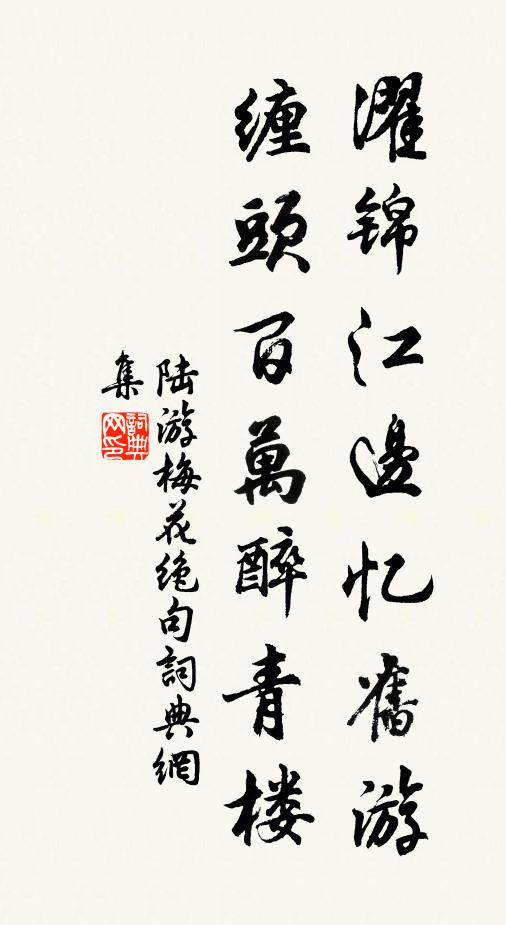 濯锦江邊忆舊游
缠頭百萬醉青楼
陆游梅花绝句詞典網
集
詞典网印